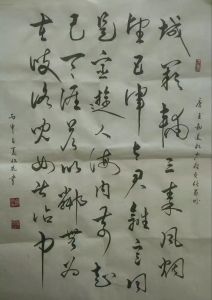 唐王勃送杜少府之任蜀州
城闕輔三秦風烟
望五津与君離別意同
是宦遊人海内存知
己天涯若比鄰無為
在岐路兒女共沾巾
丙申